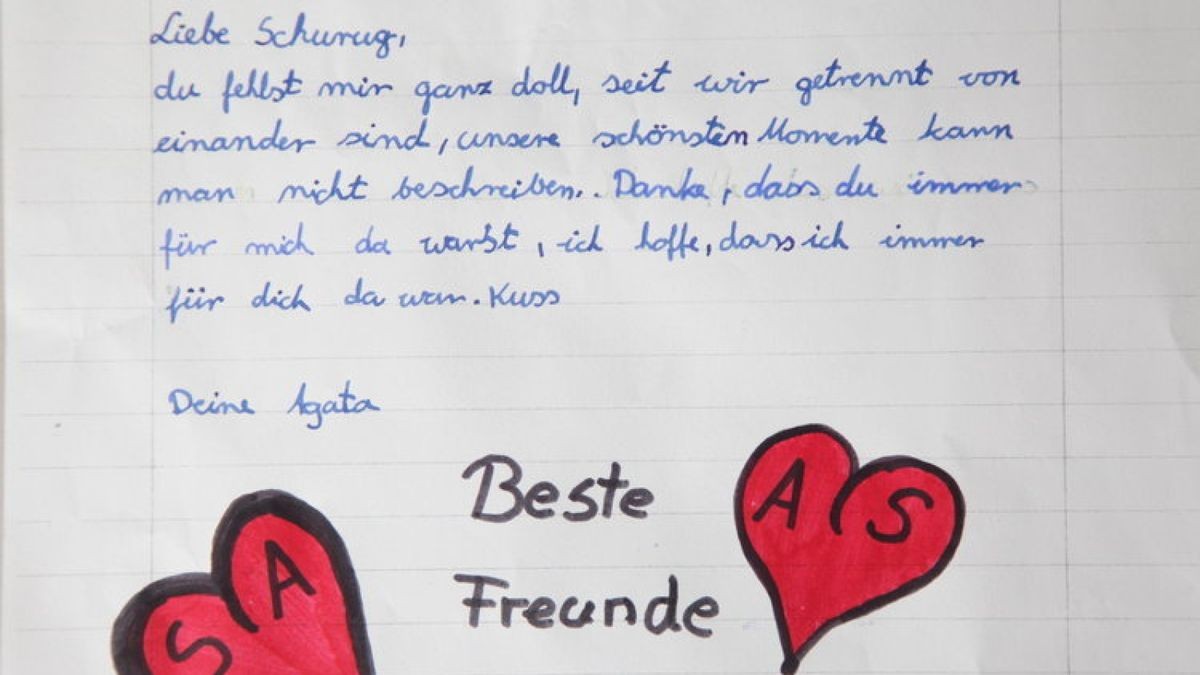 Liebe Schurug,
du fehlst mir ganz doll, seit wir getrennt von
einander sind, unsere schönsten Momente kann
man nicht beschreiben.. Danke, dass du immer
für mich da warst, ich hoffe, dass ich immer
für dich da war. Kuss
Deine Agata
Beste
Freunde
A S
S A